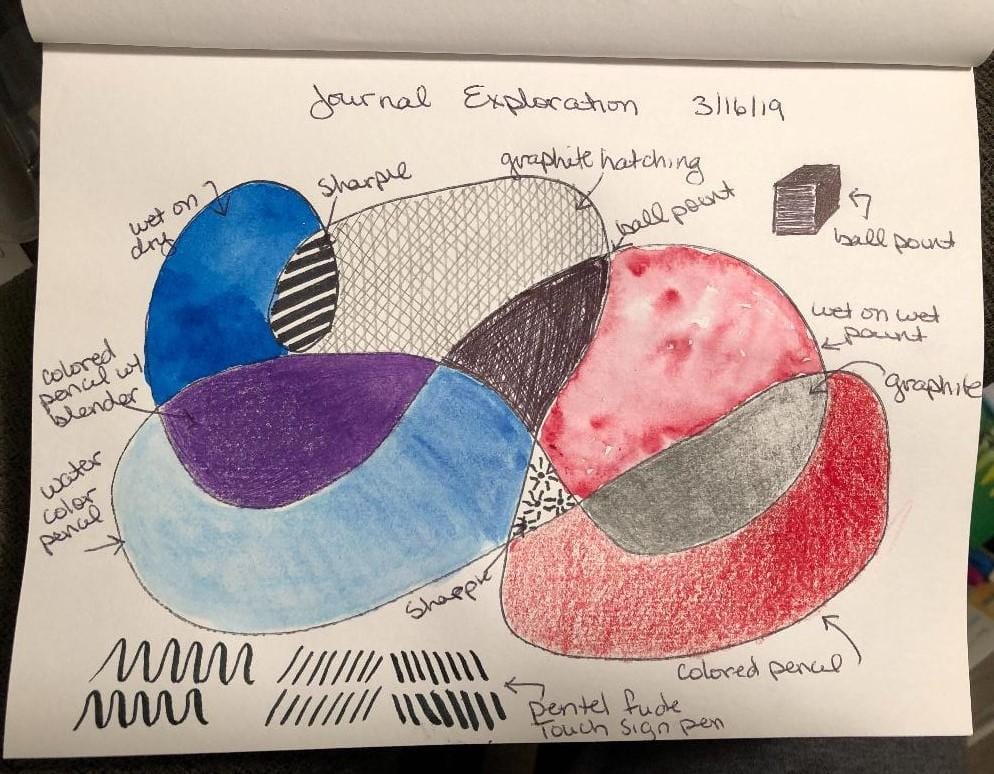 Journal Exploration 3/16/19
graphite hatching
sharpie
ball point
wet on
dry
ball point
wet on wet
paint
colored
pencil w/
blender
graphite
water
color
pencil
sharpie
colored pencil
pentel fude
Touch sign pen